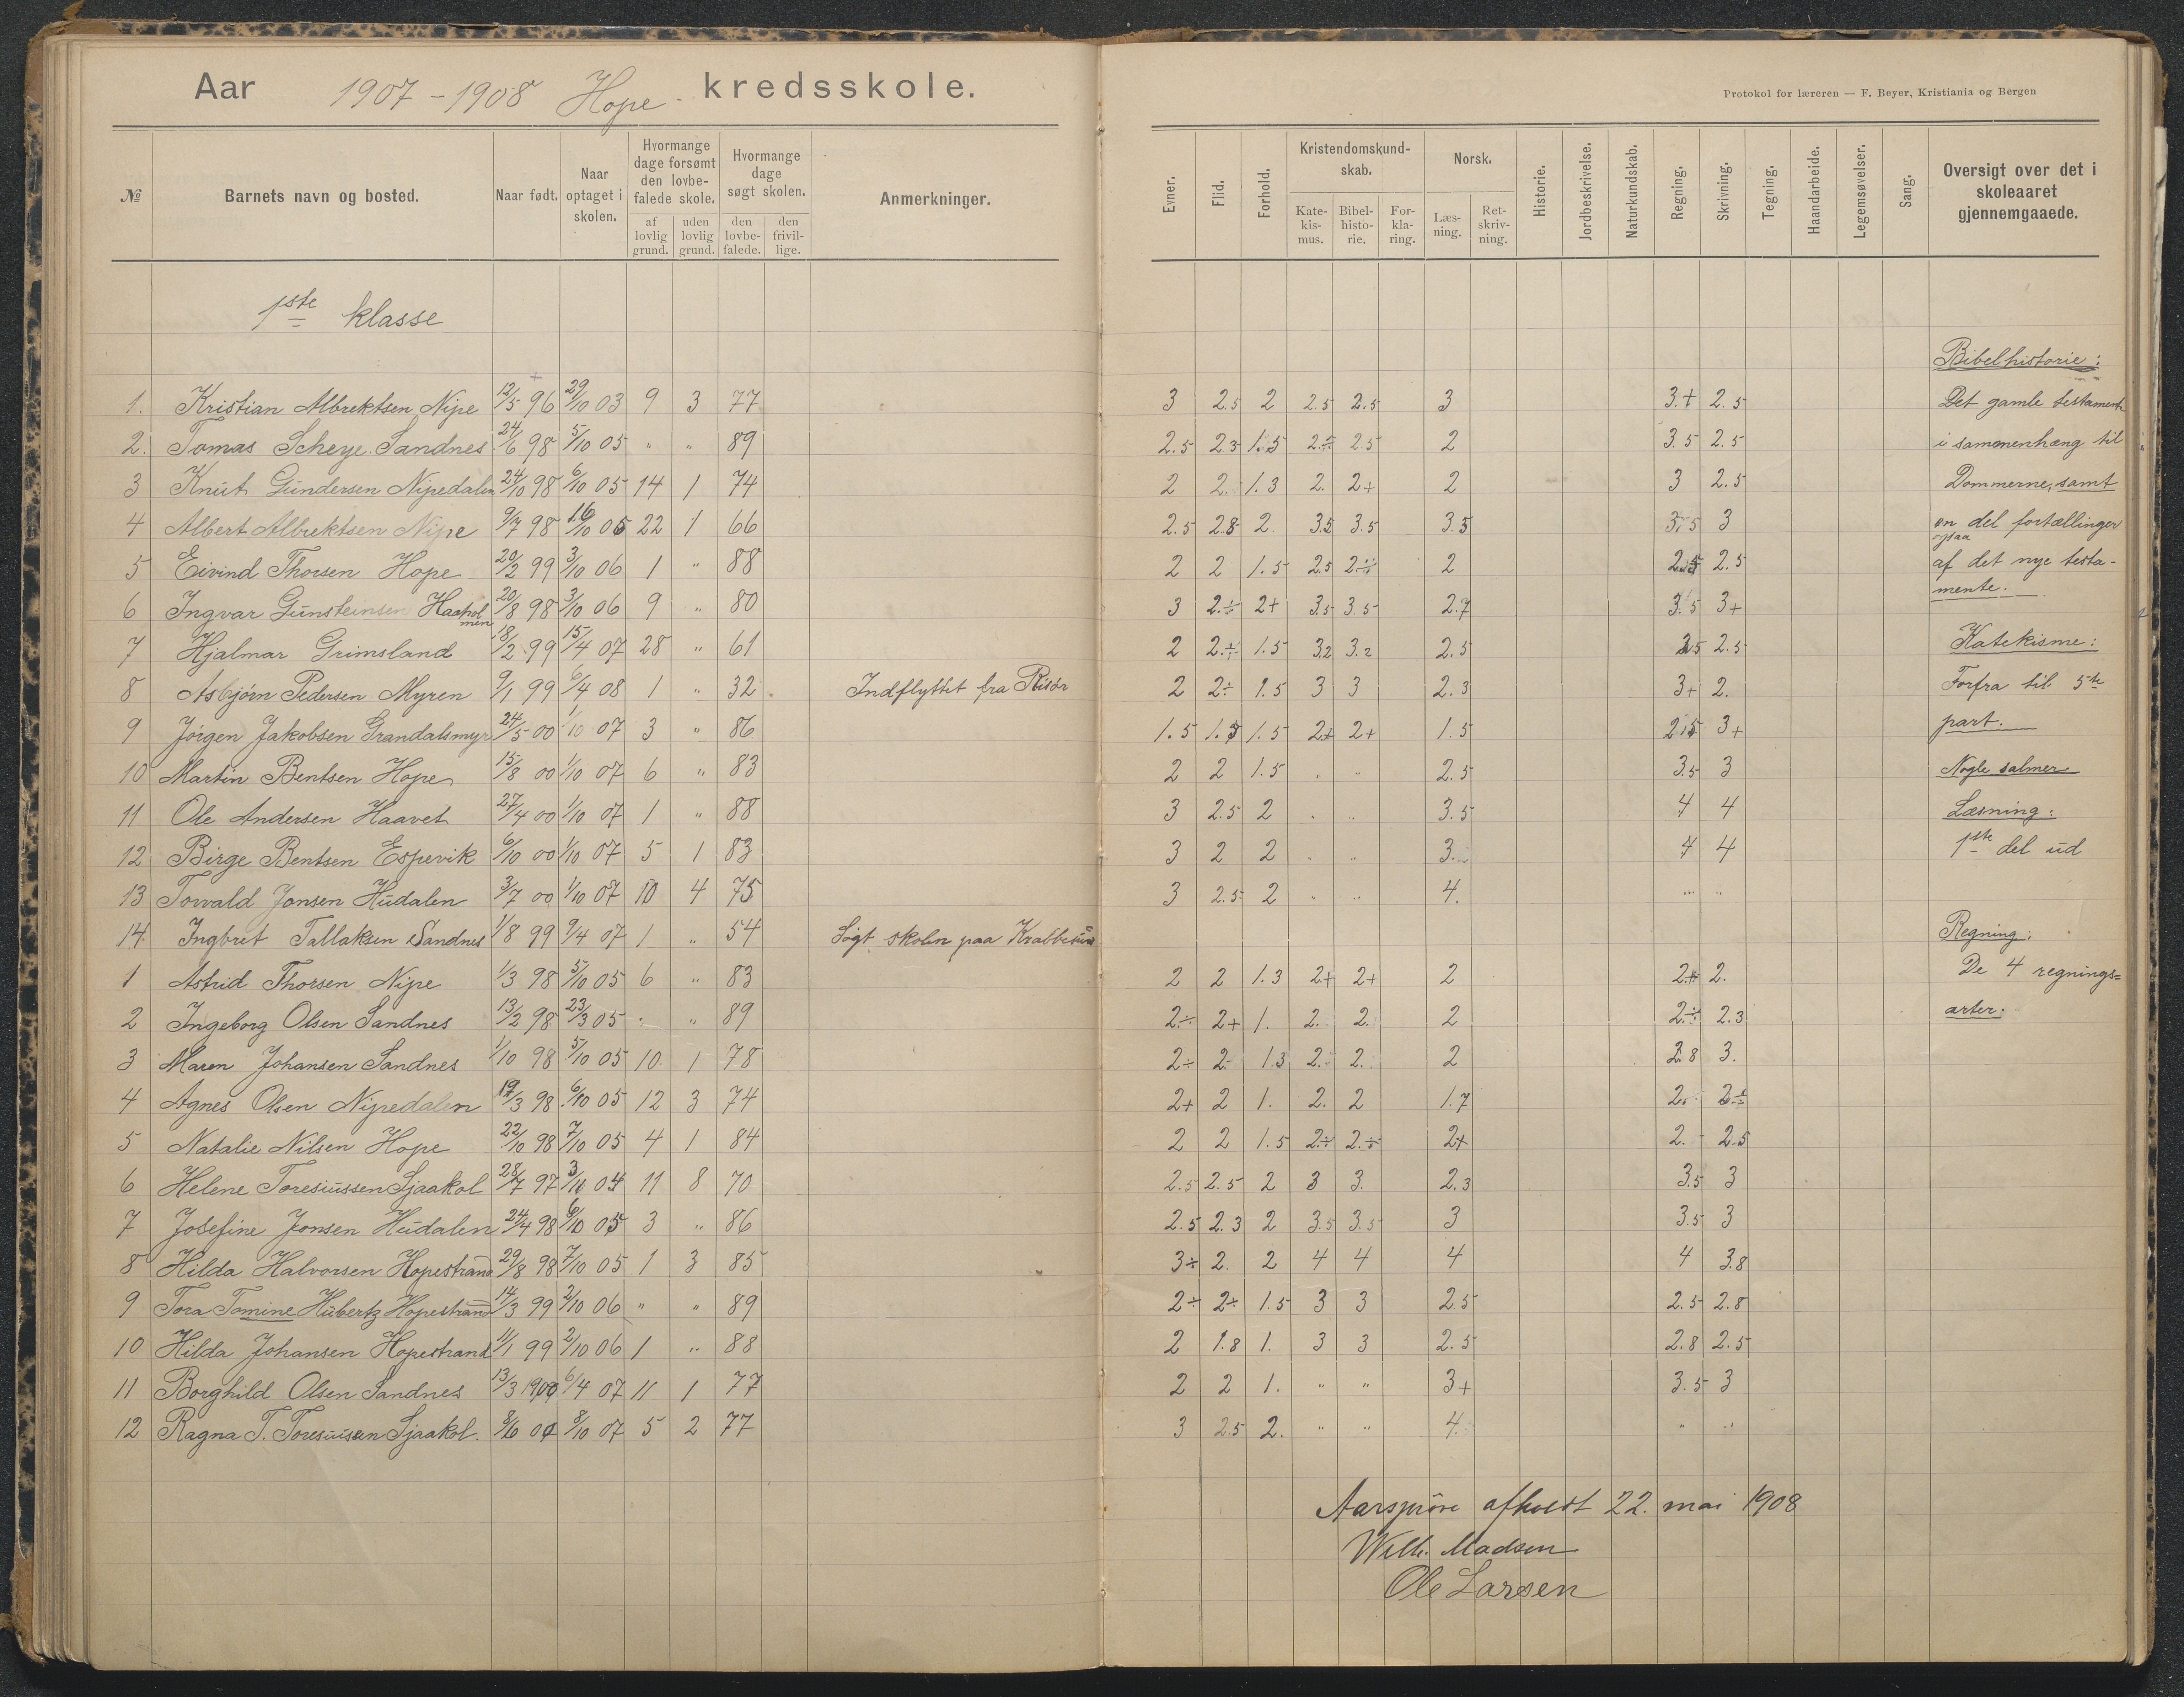 Aar 1907-1908 Hope kredsskole.
Protokol for læreren — F. Beyer, Kristiania og Bergen
№ Barnets navn og bosted. Naar født. Naar optaget i skolen. Hvormange dage forsømt den lovbefalede skole. af lovlig grund. uden lovlig grund. Hvormange dage søgt skolen. den lovbefalede. den frivillige. Anmerkninger.
Evner. Flid. Forhold. Kristendomskundskab. Katekismus. Bibelhistorie. Forklaring. Norsk. Læsning. Retskrivning. Historie. Jordbeskrivelse. Naturkundskab. Regning. Skrivning. Tegning. Haandarbeide. Legemsøvelser. Sang. Oversigt over det i skoleaaret gjennemgaaede.
1ste klasse
1. Kristian Albrektsen Nipe 12/5 96 29/10 03 9 3 77 3 2.5 2 2.5 2.5 3 3.+ 2.5
2. Tomas Scheye Sandnes 24/6 98 5/10 05 " " 89 2.5 2.3 1.5 2.÷ 2.5 2 3.5 2.5
3 Knut Gundersen Nipedalen 24/10 98 6/10 05 14 1 74 2 2. 1.3 2. 2+ 2 3 2.5
4 Albert Albrektsen Nipe 9/7 98 16/10 05 22 1 66 2.5 2.8 2. 3.5 3.5 3.5 3.5 3
5 Eivind Thorsen Hope 20/2 99 3/10 06 1 " 88 2 2 1.5 2.5 2÷ 2 2.5 2.5
6 Ingvar Gunsteinsen Haaholmen 20/8 98 3/10 06 9 " 80 3 2.÷ 2+ 3.5 3.5 2.7 3.5 3+
7 Hjalmar Grimsland 18/2 99 15/4 07 28 " 61 2 2.÷ 1.5 3.2 3.2 2.5 2.5 2.5
8 Asbjørn Pedersen Myren 9/1 99 6/4 08 1 " 32 Indflyttet fra Risør 2 2÷ 1.5 3 3 2.3 3+ 2.
9 Jörgen Jakobsen Grandalsmyr 24/5 00 1/10 07 3 " 86 1.5 1.5 1.5 2+ 2+ 1.5 2.5 3+
10 Martin Bentsen Hope 15/8 00 1/10 07 6 " 83 2 2 1.5 " " 2.5 3.5 3
11 Ole Andersen Haavet 27/4 00 1/10 07 1 " 88 3 2.5 2 " " 3.5 4 4
12 Birge Bentsen Espevik 6/10 00 1/10 07 5 1 83 3 2 2 " " 3. 4 4
13 Torvald Jonsen Hudalen 3/7 00 1/10 07 10 4 75 3 2.5 2 " " 4. " "
14 Ingbret Tallaksen Sandnes 1/8 99 9/4 07 1 " 54 Sögt skolen paa Krabbesund
1 Astrid Thorsen Nipe 1/3 98 5/10 05 6 " 83 2 2 1.3 2+ 2+ 2 2.+ 2.
2 Ingeborg Olsen Sandnes 13/2 98 23/3 05 " " 89 2.÷ 2+ 1. 2. 2. 2 2.÷ 2.3
3 Maren Johansen Sandnes 1/10 98 5/10 05 10 1 78 2÷ 2. 1.3 2. 2. 2 2.8 3.
4 Agnes Olsen Nipedalen 19/3 98 6/10 05 12 3 74 2+ 2 1. 2. 2 1.7 2. 3÷
5 Natalie Nilsen Hope 22/10 98 7/10 05 4 1 84 2 2 1.5 2÷ 2.÷ 2+ 2. 2.5
6 Helene Toresiussen Sjaakol 28/7 97 3/10 04 11 8 70 2.5 2.5 2 3 3. 2.3 3.5 3
7 Josefine Jonsen Hudalen 24/4 98 6/10 05 3 " 86 2.5 2.3 2 3.5 3.5 3 3.5 3
8 Hilda Halvorsen Hopestrand 29/8 98 7/10 05 1 3 85 3÷ 2. 2 4 4 4 4 3.8
9 Tora Tomine Hubertz Hopestrand 14/3 99 2/10 06 " " 89 2÷ 2÷ 1.5 3 3 2.5 2.5 2.8
10 Hilda Johansen Hopestrand 11/1 99 2/10 06 1 " 88 2 1.8 1. 3 3 2.5 2.8 2.5
11 Borghild Olsen Sandnes 13/3 1900 6/4 07 11 1 77 2 2 1. " " 3+ 3.5 3
12 Ragna T. Toresiussen Sjaakol. 8/6 00 8/10 07 5 2 77 3 2.5 2. " " 4. " "
Bibelhistorie:
Det gamle testamente
i sammenhæng til
Dommerne, samt
en del fortællinger
ogsaa
af det nye testa-
mente.
Katekisme:
Forfra til 5te
part.
Nogle salmer
Læsning:
1ste del ud
Regning:
De 4 regnings=
arter.
Aarspröve afholdt 22. mai 1908
Wilh. Madsen
Ole Larsen